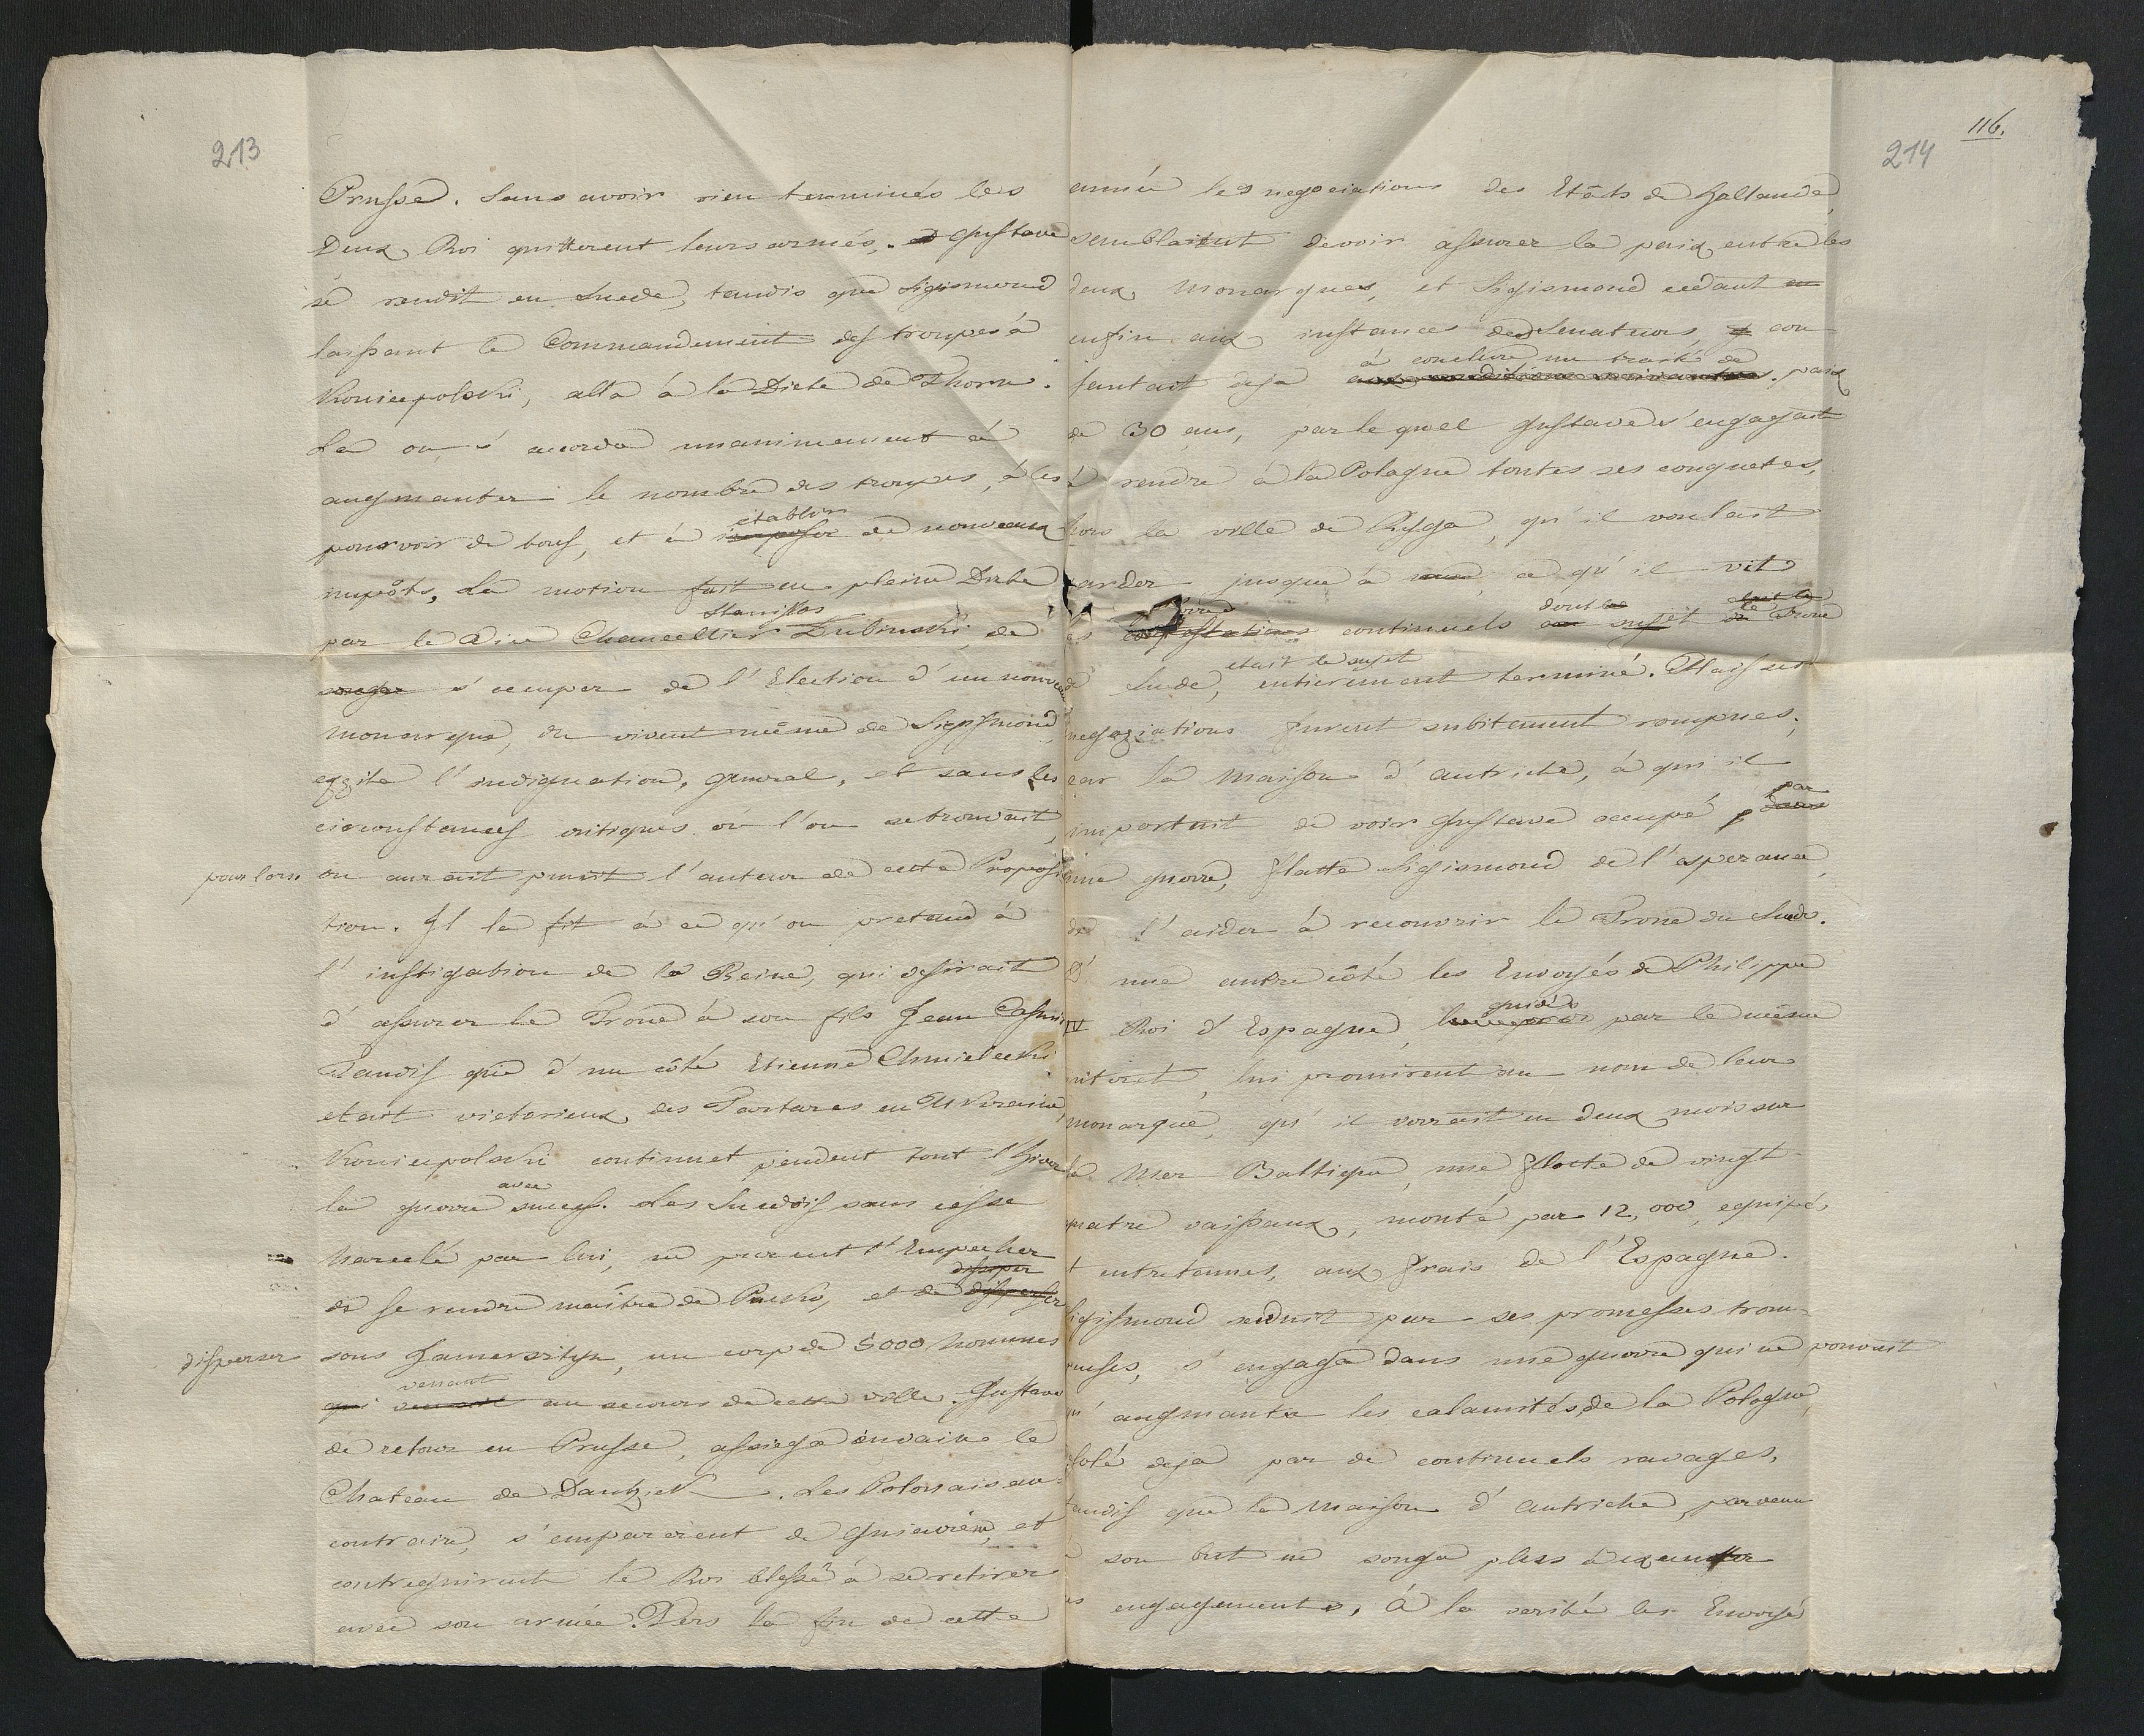 213
Prusse. Sans avoir rien terminés les
Deux Roi quitterent leurs armés, et Gustave
se rendit en Suede, tandis que Sigismond
laissant le Commandement des troupes à
Koniecpolski, alla à la Diete de Thorn.
Là on s'acorda unanimement à
augmenter le nombre des troupes, à les
établir
pourvoir de tous, et à imposer de nouveaux
impôts. La motion fait en pleine Diete
Stanislas
par le Vice Chancellier Lubinski, de
songer s'occuper de l'Election d'un nouveau
monarque, du vivent même de Sigismond,
exzita l'indignation, general, et sans les
circonstances critiques où l'on se trouvait,
pour lors on aurait punit l'auteur de cette Proposi
tion. Il la fit à ce qu'on pretend à
l'instigation de la Reine, qui desirait
d'assurer le Trone à son fils Jean Casimir
Tandis que d'un côté Etienne Chmielecki
etait victorieux des Tartares en Ukraine,
Koniecpolski continuet pendent tout l'hiver
avec
la guerre succes. Les Suedois sans cesse
harcelé par lui, ne purent l'Empecher
dissiper
de se rendre maître de Pucko, et de disperser
disperser sous Hamersztyn, un corp de 5000 hommes
venant
qui venait au secours de cette ville. Gustave
de retour en Prusse, assiega envain le
Chateau de Dantzick. Les Polonais au
contraire, s'emparerent de Gniewén, et
contregnirent le Roi blessé à se retirer
avec son armée. Vers la fin de cette
116.
214
année les negociations des Etâts de Hollande,
semblaient devoir assurer la paix entre les
deux Monarques, et Sigismond cedant en
enfin aux instances des Senateurs, y con
à conclure un traité de
sentait deja aux conditions suivantes. paix
de 30 ans, par le quel Gustave s'engagait
à rendre à la Pologne toutes ses conquetes,
hors la ville de Ryga, qu'il voulait
garder jusque à ce qu'il vit
dont le
les contestations continuels sujet le Trone
etait le sujet
de Suede, entierement terminé. Mais ses
negoziations furent subitement rompues,
car la Maison d'Autriche, à qui il
par
importait de voir Gustave occupé p dans
une guerre, flatta Sigismond de l'esperance,
de l'aider à recouvrir le Trone du Suede.
D'une autre côté les Envoyés de Philippe
guidés
IV Roi d'Espagne, par le même
interet, lui promirent au nom de leur
monarque, qu'il verrait en deux mois sur
la Mer Baltique, une flotte de vingt-
quatre vaissaux, monté par 12,000, equipés,
et entretennes, aux frais de l'Espagne.
Sigismond seduit par ses promesses trom-
peuses, s'engagea dans une guerre qui ne pouvait
qu'augmanter les calamités, de la Pologne,
desolé deja par de continuels ravages,
tandis que la Maison d'Autriche, parvenu
à son but ne songea plus à executer
ses engagements. A la verité les Envoyé